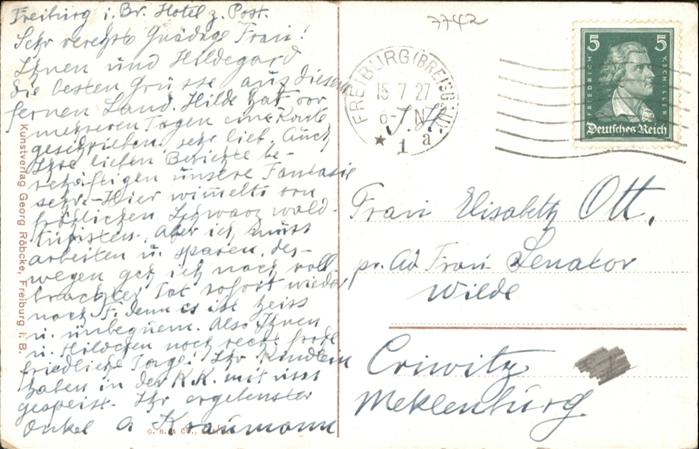 Freiburg i. Br. Hotel z. Post.
Sehr verehrte Gnädige Frau!
Ihnen und Hildegard
die besten Grüsse aus diesem
fernen Land. Hilde hat vor
mehreren Tagen eine Karte
geschrieben, sehr lieb. Auch
Ihre lieben Berichte be-
schäftigen unsere Fantasie
sehr. - Hier wimmelts von
fröhlichen Schwarzwald-
tupisten. Aber ich muss
arbeiten u. sparen, des-
wegen geh ich nach voll-
brachter Tat sofort wieder
nach F. denn es ist heiss
u. unbequem. Also Ihnen
u. Hildchen noch recht frohe
friedliche Tage! Ihr Kindlein
haben in der K.K. mit uns
gespeist. Ihr ergebenster
Onkel A Kraumann
7742
FREIBURG (BREISGAU)
15 7 27
6-7 N
* 1 a
5 5
FRIEDRICH SCHILLER
Deutsches Reich
Frau Elisabeth Ott,
pr. Ad Frau Senator
Wilde
Criwitz
Meklenburg.
Kunstverlag Georg Röbcke, Freiburg i. B.